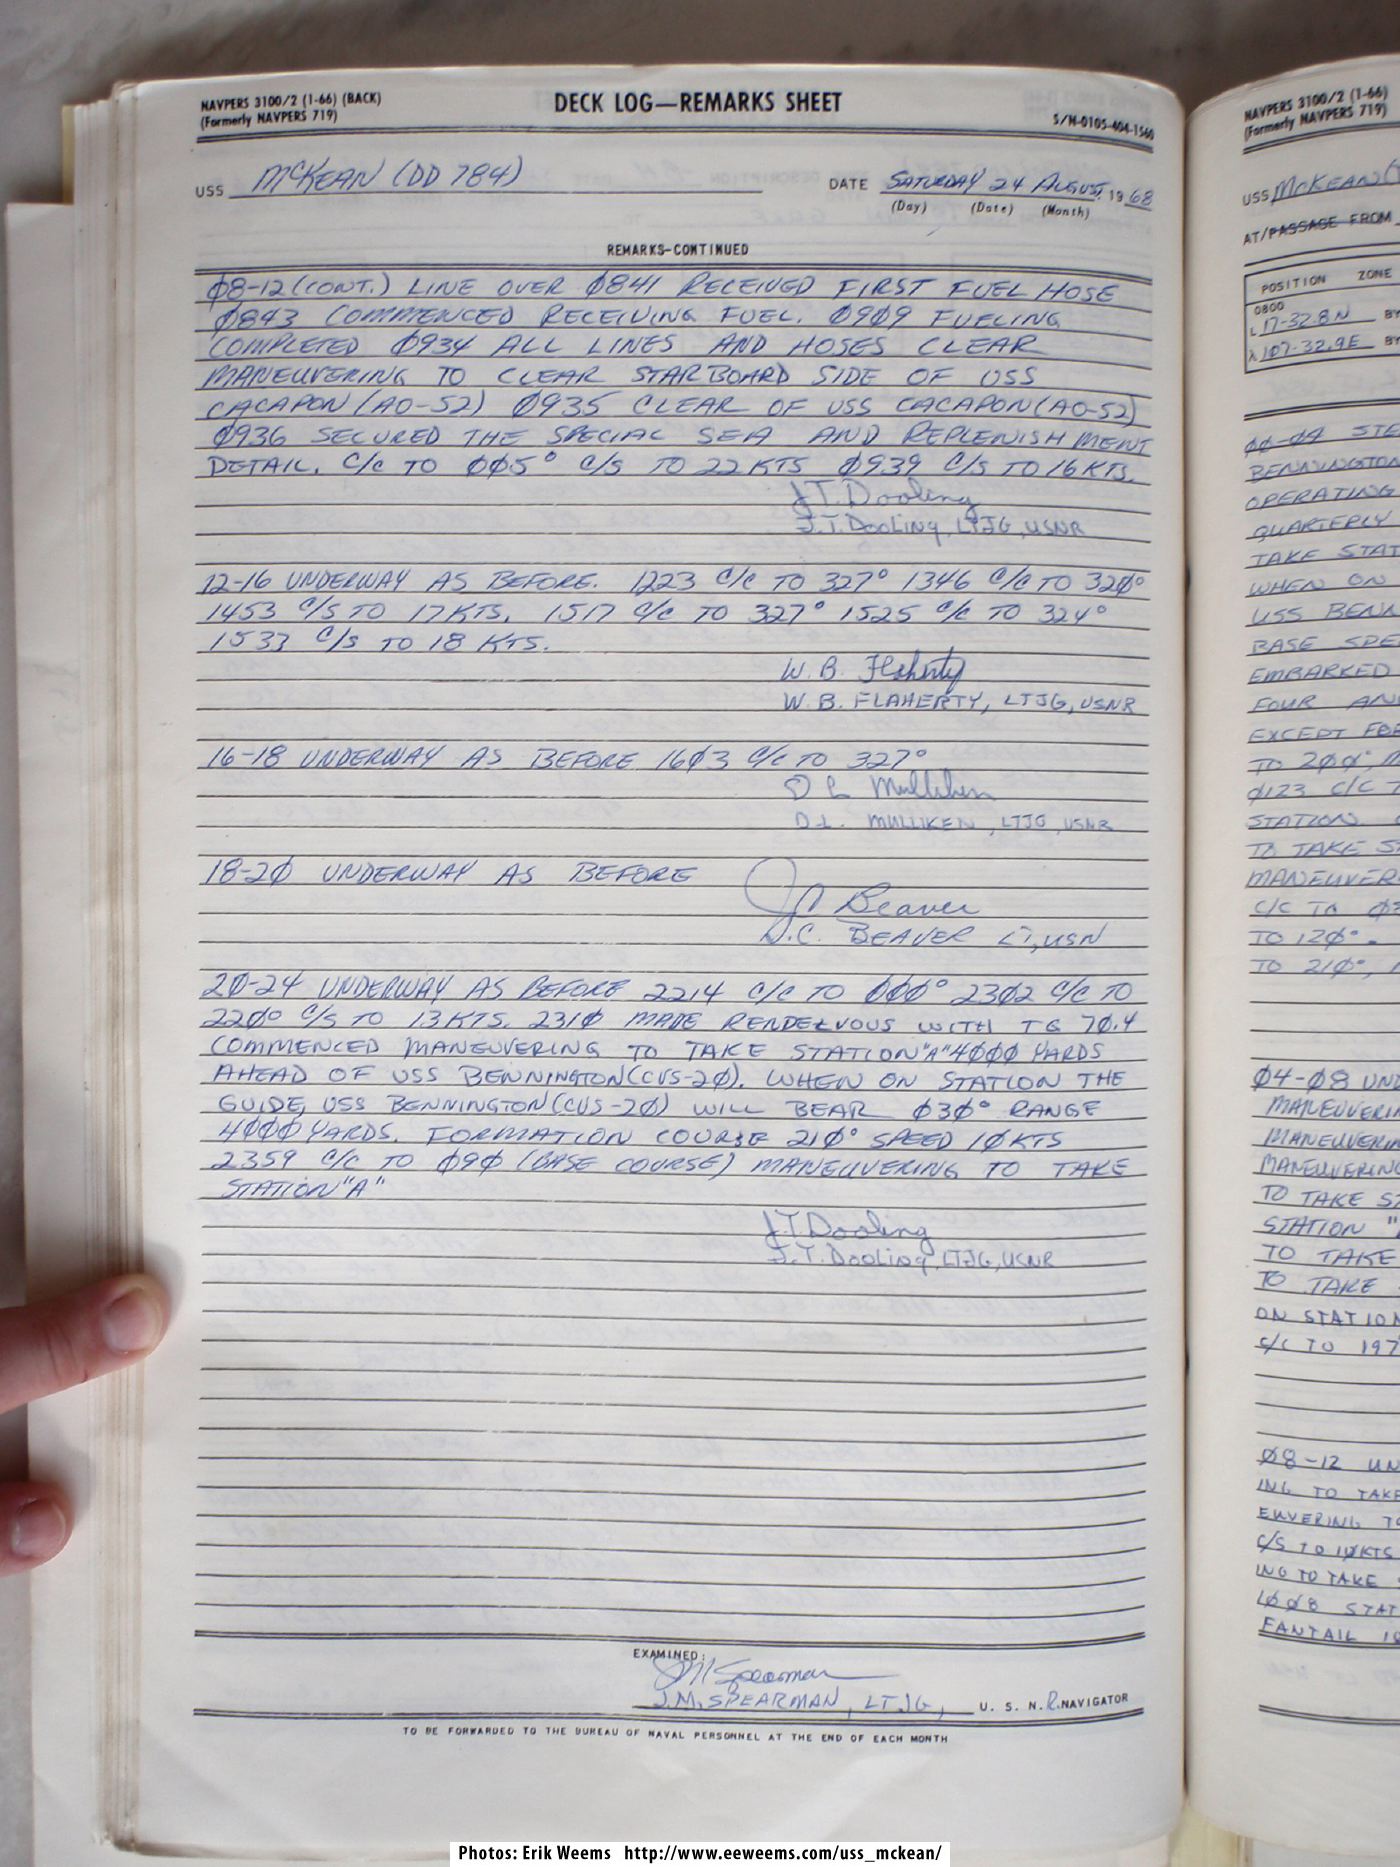 NAVPERS 3100/2 (1-66) (BACK)
(Formerly NAVPERS 719)
DECK LOG—REMARKS SHEET
S/N-0105-404-1560
USS McKEAN (DD 784)
DATE SATURDAY 24 AUGUST, 19 68
(Day) (Date) (Month)
REMARKS-CONTINUED
Ø8-12 (CONT.) LINE OVER Ø841 RECEIVED FIRST FUEL HOSE
Ø843 COMMENCED RECEIVING FUEL. Ø9Ø9 FUELING
COMPLETED Ø934 ALL LINES AND HOSES CLEAR
MANEUVERING TO CLEAR STARBOARD SIDE OF USS
CACAPON (AO-52) Ø935 CLEAR OF USS CACAPON (AO-52)
Ø936 SECURED THE SPECIAL SEA AND REPLENISHMENT
DETAIL. C/C TO ØØ5° C/S TO 22 KTS Ø939 C/S TO 16 KTS.
J.T. Dooling
J.T. DOOLING, LTJG, USNR
12-16 UNDERWAY AS BEFORE. 1223 C/C TO 327° 1346 C/C TO 32Ø°
1453 C/S TO 17 KTS. 1517 C/C TO 327° 1525 C/C TO 324°
1533 C/S TO 18 KTS.
W. B. Flaherty
W. B. FLAHERTY, LTJG, USNR
16-18 UNDERWAY AS BEFORE 16Ø3 C/C TO 327°
D L Mulliken
D.L. MULLIKEN, LTJG, USNR
18-2Ø UNDERWAY AS BEFORE
Beaver
D.C. BEAVER LT, USN
2Ø-24 UNDERWAY AS BEFORE 2214 C/C TO ØØØ° 23Ø2 C/C TO
22Ø° C/S TO 13 KTS. 231Ø MADE RENDEZVOUS WITH TG 7Ø.4
COMMENCED MANEUVERING TO TAKE STATION "A" 4ØØØ YARDS
AHEAD OF USS BENNINGTON (CVS-2Ø). WHEN ON STATION THE
GUIDE, USS BENNINGTON (CVS-2Ø) WILL BEAR Ø3Ø° RANGE
4ØØØ YARDS. FORMATION COURSE 21Ø° SPEED 1Ø KTS
2359 C/C TO Ø9Ø (BASE COURSE) MANEUVERING TO TAKE
STATION "A"
J.T. Dooling
J.T. DOOLING, LTJG, USNR
EXAMINED:
J M Spearman
J.M. SPEARMAN, LTJG, U. S. N.R. NAVIGATOR
TO BE FORWARDED TO THE BUREAU OF NAVAL PERSONNEL AT THE END OF EACH MONTH
NAVPERS 3100/2 (1-66)
(Formerly NAVPERS 719)
USS McKEAN
AT/PASSAGE FROM
POSITION ZONE
0800
L 17-32.8N BY
λ 107-32.9E BY
ØØ-Ø4 STE
BENNINGTON
OPERATING
QUARTERLY
TAKE STAT
WHEN ON
USS BENN
BASE SPE
EMBARKED
FOUR AN
EXCEPT FOR
TO 2ØØ°,
Ø123 C/C T
STATION
TO TAKE S
MANEUVER
C/C TO
TO 12Ø°.
TO 21Ø°,
Ø4-Ø8 UND
MANEUVERIN
MANEUVERIN
MANEUVERING
TO TAKE ST
STATION "
TO TAKE
TO TAKE
ON STATION
C/C TO 197
Ø8-12 UN
ING TO TAKE
EUVERING TO
C/S TO 1ØKTS
ING TO TAKE
1ØØ8 STAT
FANTAIL
Photos: Erik Weems http://www.eeweems.com/uss_mckean/